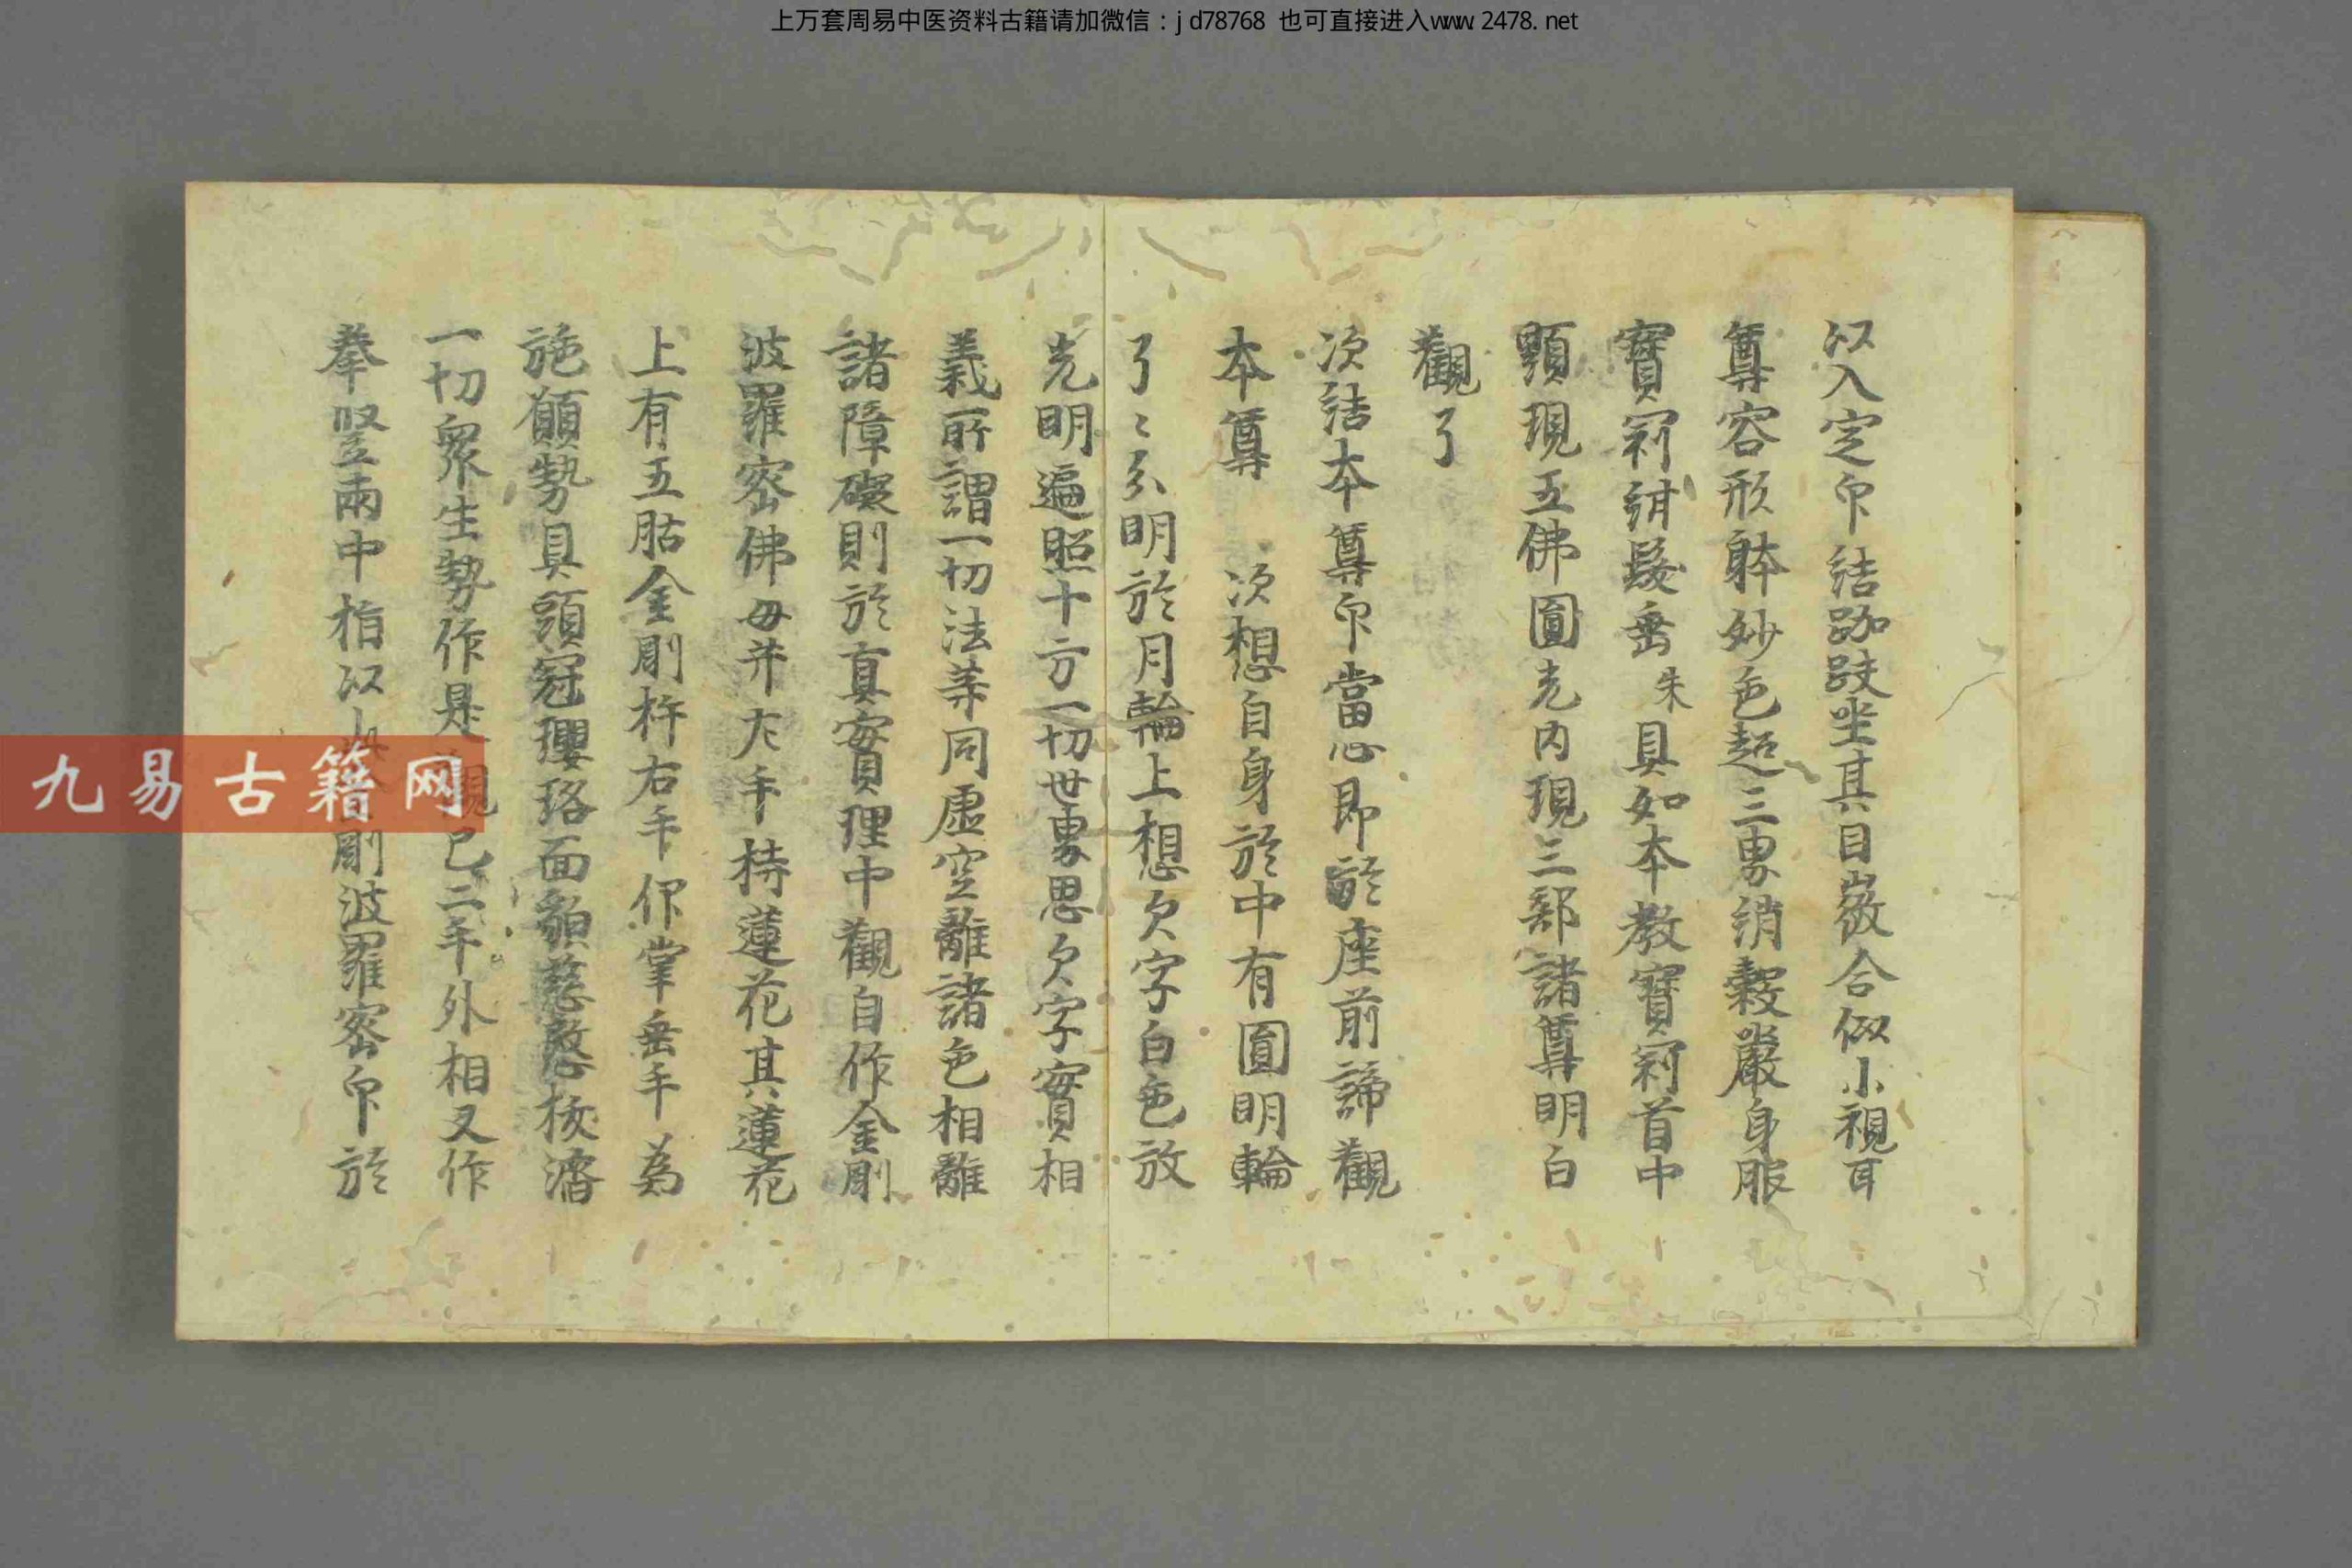 上万套周易中医资料古籍请加微信：jd78768 也可直接进入www.2478.net
以入定印結跏趺坐其目微合似小視耳
尊容形躰妙色超三界綃縠嚴身服
寶冠紺髮垂朱具如本教寶冠首中
顯現五佛圓光內現三部諸尊明白
觀了
次結本尊印當心即於座前諦觀
本尊 次想自身於中有圓明輪
了〻分明於月輪上想欠字白色放
光明遍照十方一切世界思欠字實相
義所謂一切法等同虛空離諸色相離
諸障礙則於真實理中觀自作金剛
波羅密佛母并左手持蓮花其蓮花
上有五股金剛杵右手仰掌垂手為
施願勢具頭冠瓔珞面貌慈愍拔濟
一切衆生勢作是觀已二手外相叉作
拳竪兩中指以金剛波羅密印於
九易古籍网